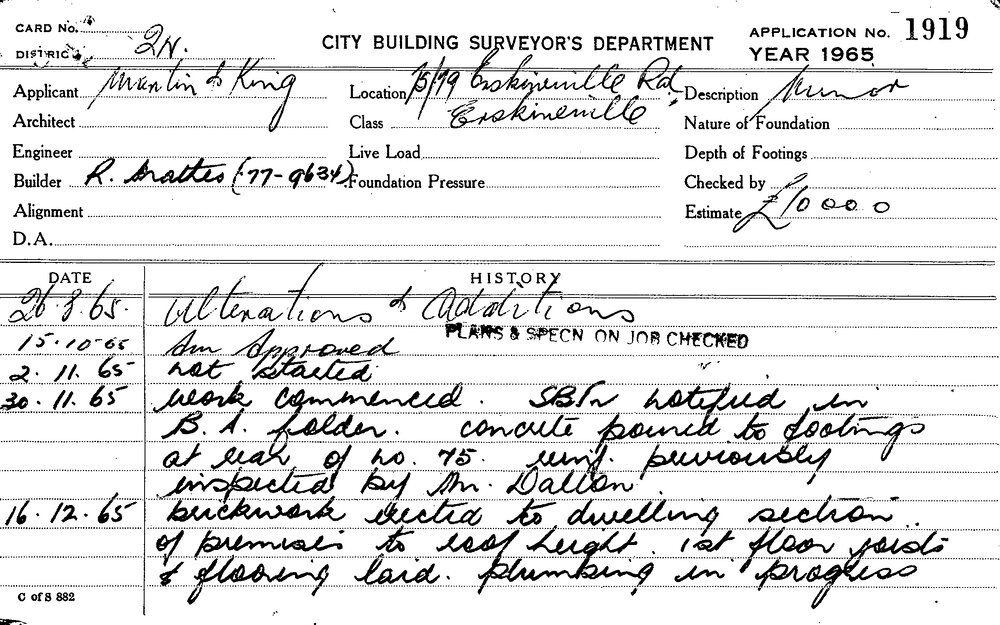 CARD No.
DISTRICT 2N.
CITY BUILDING SURVEYOR'S DEPARTMENT
APPLICATION No. 1919
YEAR 1965
Applicant Martin & King
Location 75/79 Erskineville Rd,
Description Minor
Architect
Class Erskineville
Nature of Foundation
Engineer
Live Load
Depth of Footings
Builder R. (77-9634)
Foundation Pressure
Checked by
Alignment
Estimate £10000
D.A.
DATE HISTORY
26.8.65. Alterations & Additions
PLANS & SPECN ON JOB CHECKED
15.10.65 Approved
2.11.65 not started
30.11.65 work commenced. notified in
B.A. folder. concrete poured to footings
at rear of no. 75. reinf. previously
inspected by Mr. Dalton.
16.12.65 brickwork erected to dwelling section
of premises to roof height. 1st floor joists
& flooring laid. plumbing in progress
C of S 882